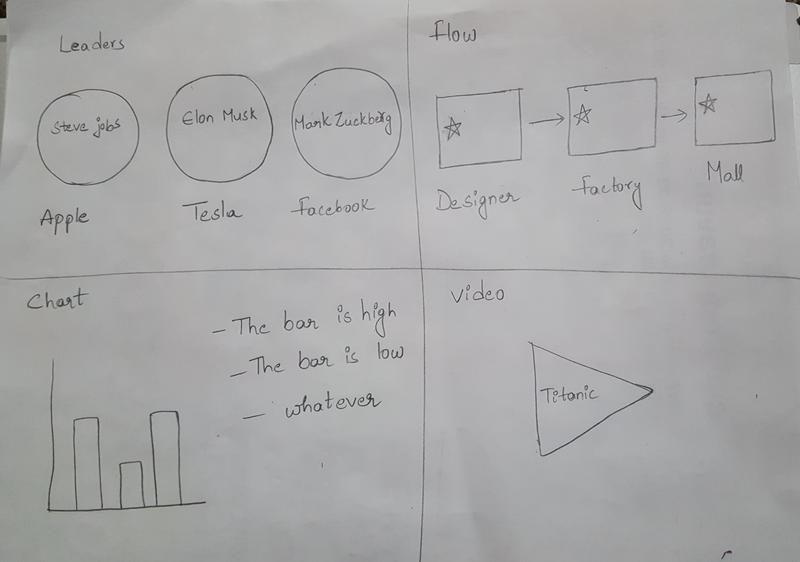 Leaders
Steve jobs
Elon Musk
Mark Zuckberg
Apple
Tesla
Facebook
Flow
Designer
Factory
Mall
Chart
- The bar is high
- The bar is low
- whatever
Video
Titanic